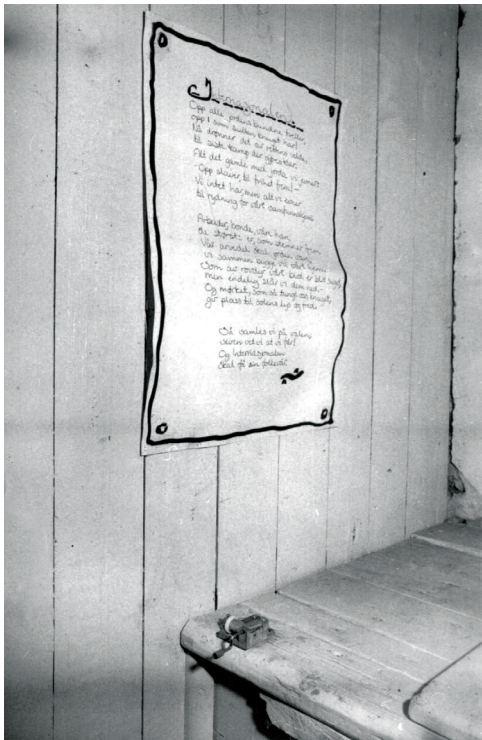 Internasjonalen
Opp alle jordens bundne treller,
opp I som sulten knuget har!
Nå drønner det av rettens velde,
til siste kamp der gjøres klar.
Alt det gamle med jorda vi jevner
Opp slaver, til frihet frem! -
Vi intet har, men alt vi evner
til rydning for vårt samfunnshjem
Arbeider, bonde, våre hær,
de største er, som stevner frem
Vår arvedel skal jorden være,
vi sammen bygge vil vårt hjem.
Som av rovdyr vårt blod er blitt suget,
men endelig slår vi dem ned -
Og mørket, som så tungt oss knuget,
gir plass til solens lys og fred.
Så samles vi på valen,
seiren vet vi at vi får!
Og Internasjonalen
Skal få sin folkevår.